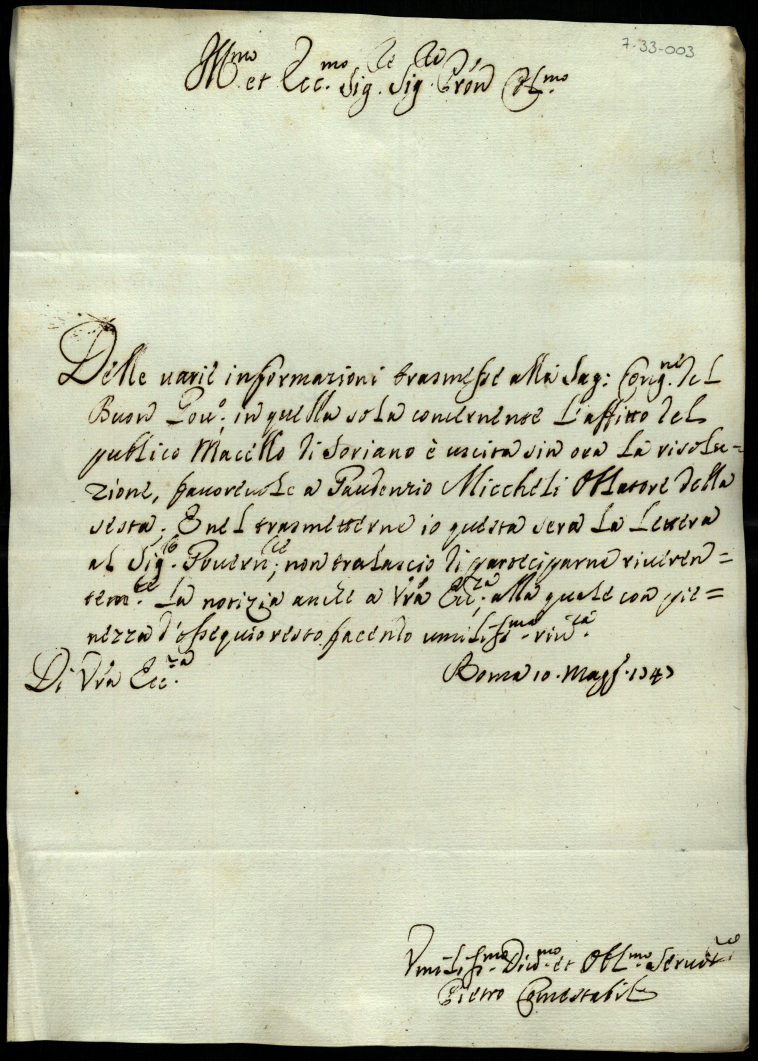 7-33-003
Ill.mo et Ecc.mo Sig.re Sig.re Prōn Col.mo
Delle varie informazioni trasmesse alla Sag: Cong.ne del
Buon Gov.o, in quella sola concernente l'affitto del
publico Macello di Soriano è uscita sin ora la risolu=
zione, favorevole a Gaudenzio Miccheli Oblatore della
sesta. E nel trasmetterne io questa sera la Lettera
al Sig.re Govern.re, non tralascio di parteciparne riveren=
tem.te la notizia anche a V̄ra Ecc.za, alla quale con pie=
nezza d'ossequio resto facendo umilissi.ma riv.za
Di V̄ra Ecc.za
Roma 10. Magg.o 1747
Umilissi.mo Div.mo et Obl.mo Servit.re
Pietro Connestabile